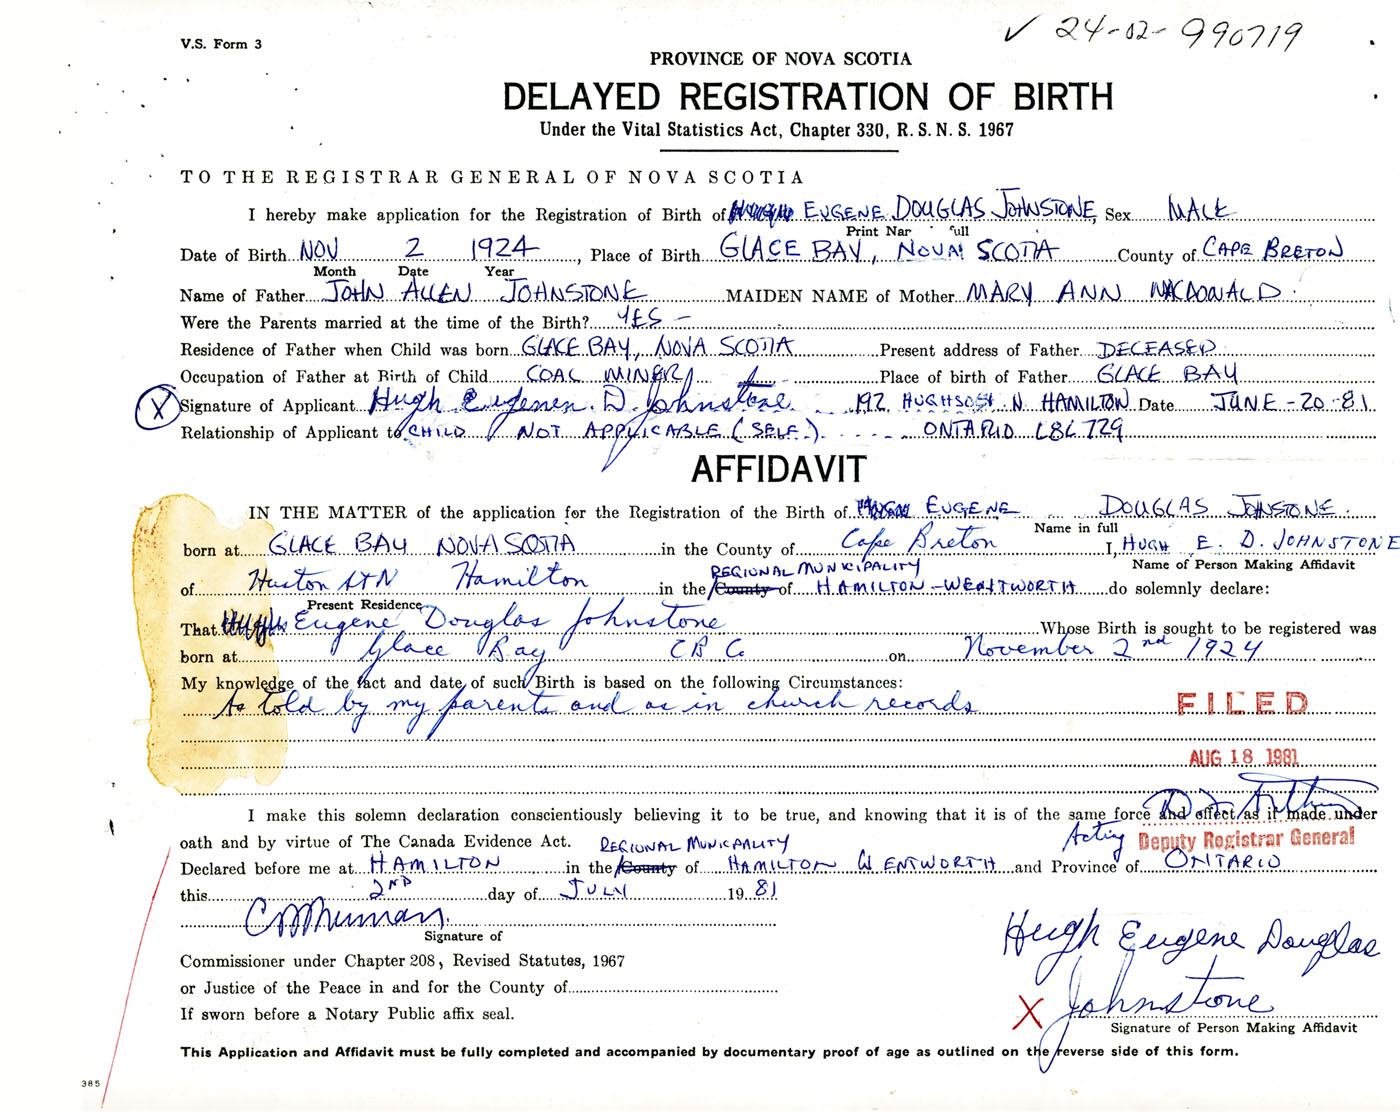 V.S. Form 3
✓ 24-02-990719
PROVINCE OF NOVA SCOTIA
DELAYED REGISTRATION OF BIRTH
Under the Vital Statistics Act, Chapter 330, R. S. N. S. 1967
TO THE REGISTRAR GENERAL OF NOVA SCOTIA
I hereby make application for the Registration of Birth of EUGENE DOUGLAS JOHNSTONE, Sex MALE
Print Nam full
Date of Birth NOV 2 1924, Place of Birth GLACE BAY, NOVA SCOTIA County of CAPE BRETON
Month Date Year
Name of Father JOHN ALLEN JOHNSTONE MAIDEN NAME of Mother MARY ANN MACDONALD
Were the Parents married at the time of the Birth? YES -
Residence of Father when Child was born GLACE BAY, NOVA SCOTIA Present address of Father DECEASED
Occupation of Father at Birth of Child COAL MINER Place of birth of Father GLACE BAY
X Signature of Applicant Hugh Eugenen D. Johnstone 192 HUGHSON N HAMILTON Date JUNE-20-81
Relationship of Applicant to CHILD NOT APPLICABLE (SELF.) ONTARIO L8L 7Z9
AFFIDAVIT
IN THE MATTER of the application for the Registration of the Birth of EUGENE DOUGLAS JOHNSTONE
Name in full
born at GLACE BAY NOVA SCOTIA in the County of Cape Breton I, HUGH E. D. JOHNSTONE
Name of Person Making Affidavit
REGIONAL MUNICIPALITY
of Hamilton in the County of HAMILTON-WENTWORTH do solemnly declare:
Present Residence
That Hugh Eugene Douglas Johnstone Whose Birth is sought to be registered was
born at Glace Bay CB Co on November 2nd 1924
My knowledge of the fact and date of such Birth is based on the following Circumstances:
As told by my parents and as in church records
FILED
AUG 18 1981
I make this solemn declaration conscientiously believing it to be true, and knowing that it is of the same force and effect as if made under
oath and by virtue of The Canada Evidence Act.
Acting Deputy Registrar General
REGIONAL MUNICIPALITY
Declared before me at HAMILTON in the County of HAMILTON WENTWORTH and Province of ONTARIO
this 2ND day of JULY 1981
Signature of
Hugh Eugene Douglas
Commissioner under Chapter 208, Revised Statutes, 1967
or Justice of the Peace in and for the County of
X Johnstone
If sworn before a Notary Public affix seal.
Signature of Person Making Affidavit
This Application and Affidavit must be fully completed and accompanied by documentary proof of age as outlined on the reverse side of this form.
385